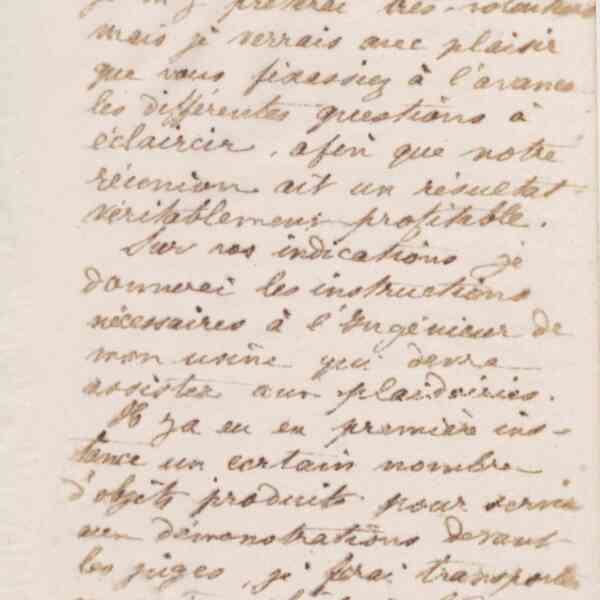 je m'y prêterai très-volontiers
mais je verrais avec plaisir
que vous fixassiez à l'avance
les différentes questions à
éclaircir, afin que notre
réunion ait un résultat
véritablement profitable.
Sur vos indications je
donnerai les instructions
nécessaires à l'Ingénieur de
mon usine qui devra
assister aux plaidoiries.
Il y a eu en première ins-
tance un certain nombre
d'objets produits pour servir
aux démonstrations devant
les juges, je ferai transporter